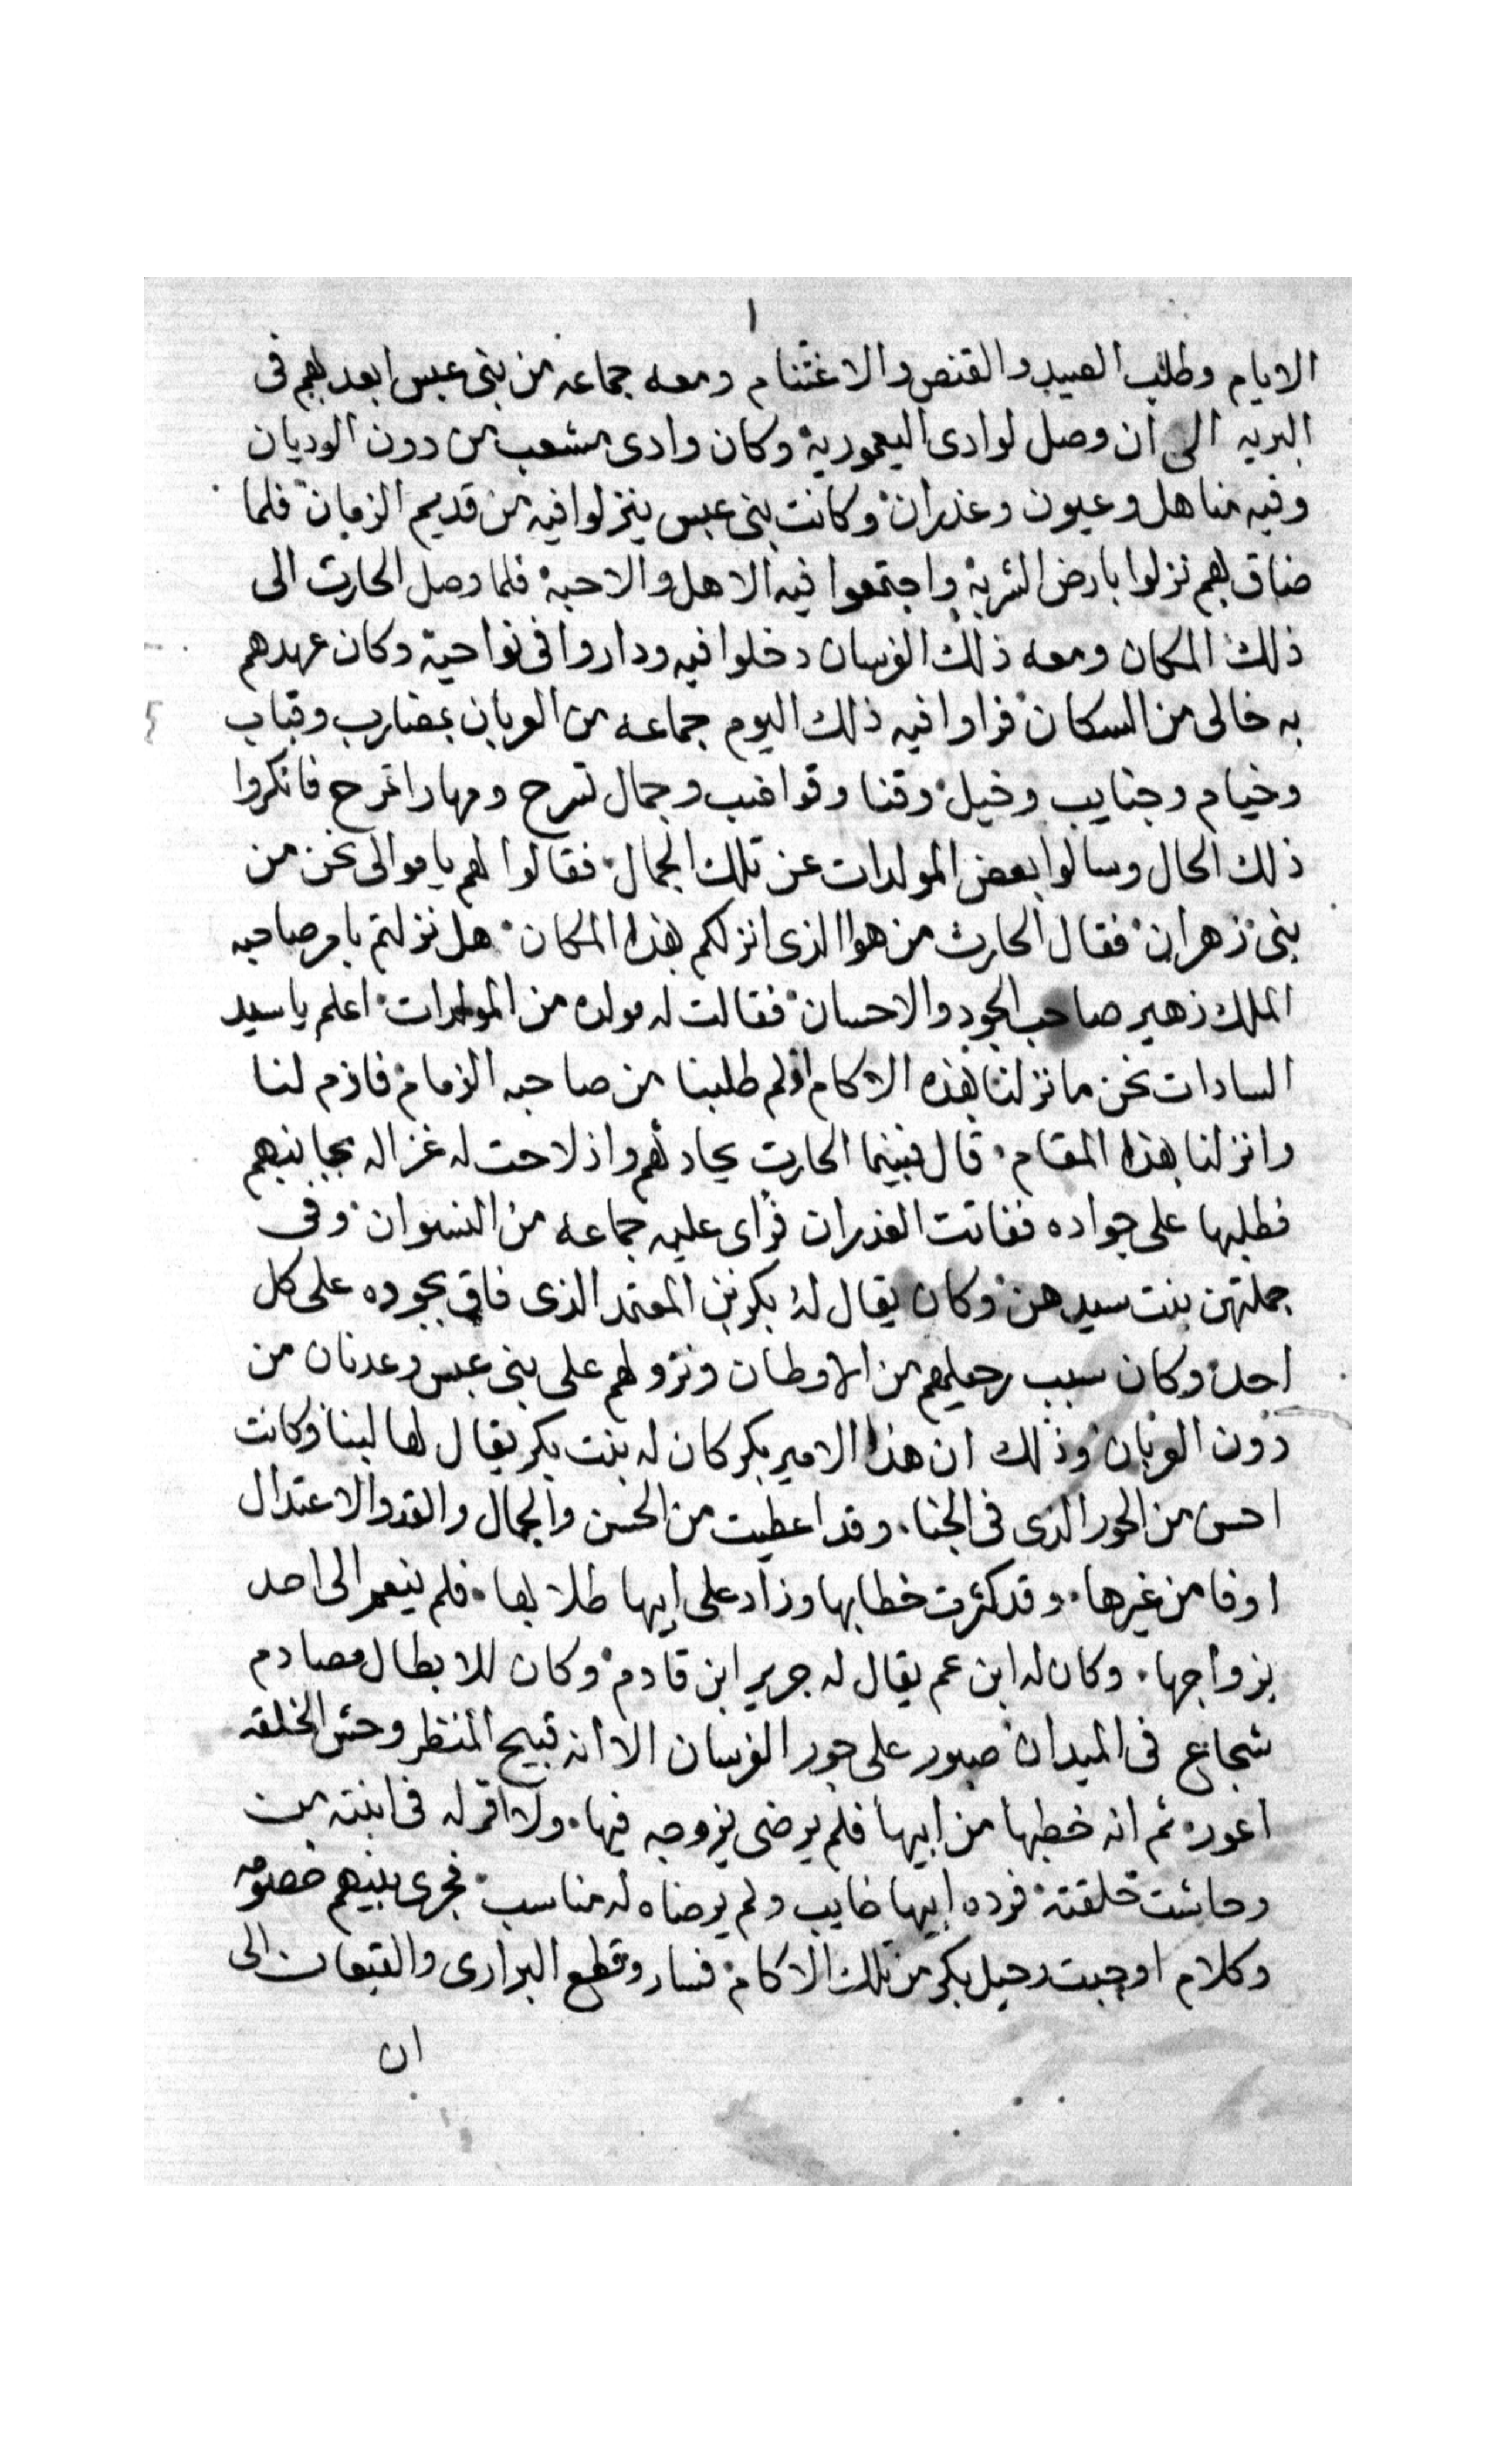 ١
الايام وطلب الصيد والقنص والاغتنام ومعه جماعه من بنى عبس ابعد بهم فى
البريه الى ان وصل لوادى اليعمورية وكان وادى مشعب من دون الوديان
وفيه مناهل وعيون وغدران وكانت بنى عبس ينزلوا فيه من قديم الزمان فلما
ضاق بهم نزلوا بارض الشربة واجتمعوا فيه الاهل والاحبة فلما وصل الحارث الى
ذلك المكان ومعه ذلك الفرسان دخلوا فيه وداروا فى نواحية وكان عهدهم
به خالى من السكان فراوا فيه ذلك اليوم جماعه من العربان بمضارب وقباب
وخيام وجنايب وخيل وقنا وقواضب وجمال تسرح ومهارا تمرح فانكروا
ذلك الحال وسالوا بعض المولدات عن تلك الجمال فقالوا لهم يا موالى نحن من
بنى زهران فقال الحارث من هوا الذى انزلكم بهذا المكان هل نزلتم بامر صاحبه
الملك زهير صاحب الجود والاحسان فقالت له مولده من المولدات اعلم يا سيد
السادات نحن ما نزلنا بهذه الاكام اولم طلبنا من صاحبه الزمام فازم لنا
وانزلنا بهذا المقام قال فبينما الحارث يحادثهم واذ لاحت له غزاله بجانبهم
فطلبها على جواده ففاتت الغدران فراى عليه جماعه من النسوان وفى
جملتهن بنت سيدهن وكان يقال له بكر بن المعتمد الذى فاق بجوده على كل
احد وكان سبب رحيلهم من الاوطان ونزولهم على بنى عبس وعدنان من
دون العربان وذلك ان هذا الامير بكر كان له بنت بكر يقال لها لبنا وكانت
احسن من الحور الذى فى الجنا وقد اعطيت من الحسن والجمال والقد والاعتدال
اوفا من غيرها وقد كثرت خطابها وزاد على ابيها طلابها فلم ينعم الى احد
بزواجها وكان له ابن عم يقال له جرير ابن قادم وكان للابطال مصادم
شجاع فى الميدان صبور على جور الفرسان الا انه قبيح المنظر وحش الخلقه
اعور ثم انه خطبها من ابيها فلم يرضى يزوجه فيها ولا اقر له فى ابنته من
وحاشت خلقته فرده ابيها خايب ولم يرضاه له مناسب فجرى بينهم خصومه
وكلام اوجبت رحيل بكر من تلك الاكام فسار وقطع البرارى والقيعان الى
ان